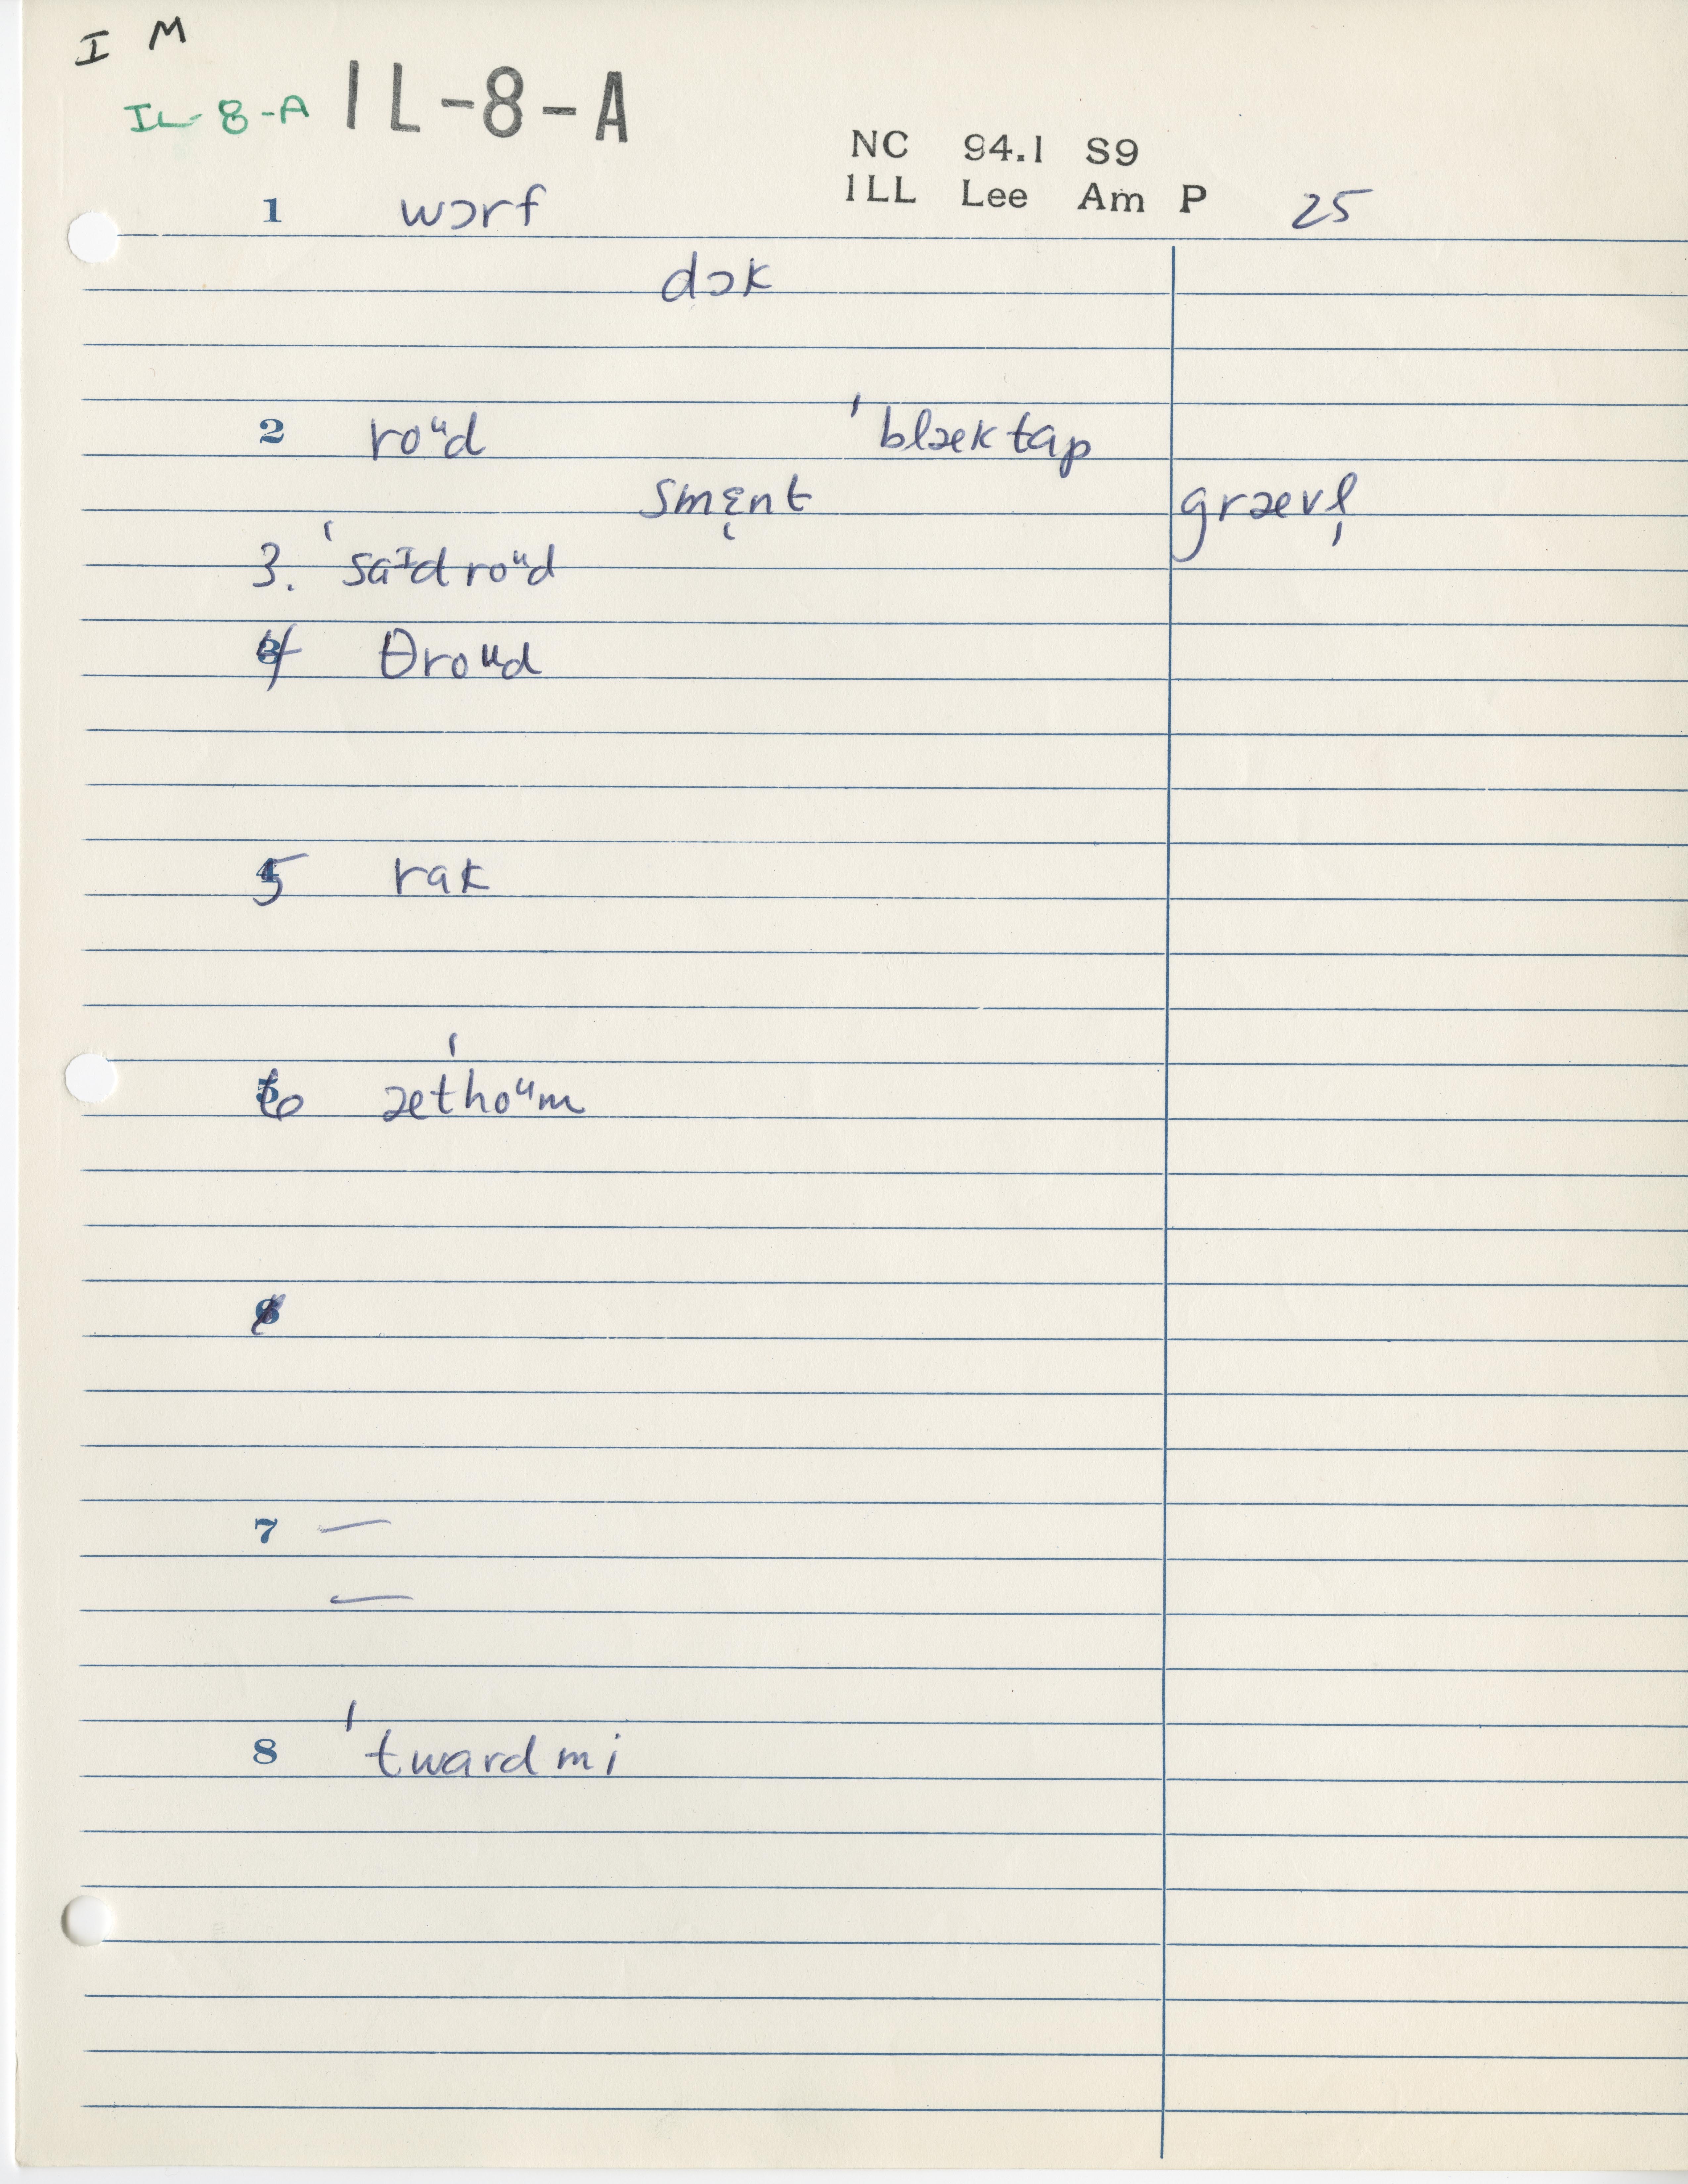 I M
IL-8-A IL-8-A
NC 94.1 S9
ILL Lee Am P 25
1 wɔrf
dɔk
2 roᵘd ˈblæktap
smɛ̜nt grævl̩
3. ˈsaᴵdroᵘd
4 θroᵘd
5 rak
6 ætˈhoᵘm
7 —
—
8 ˈtwardmi